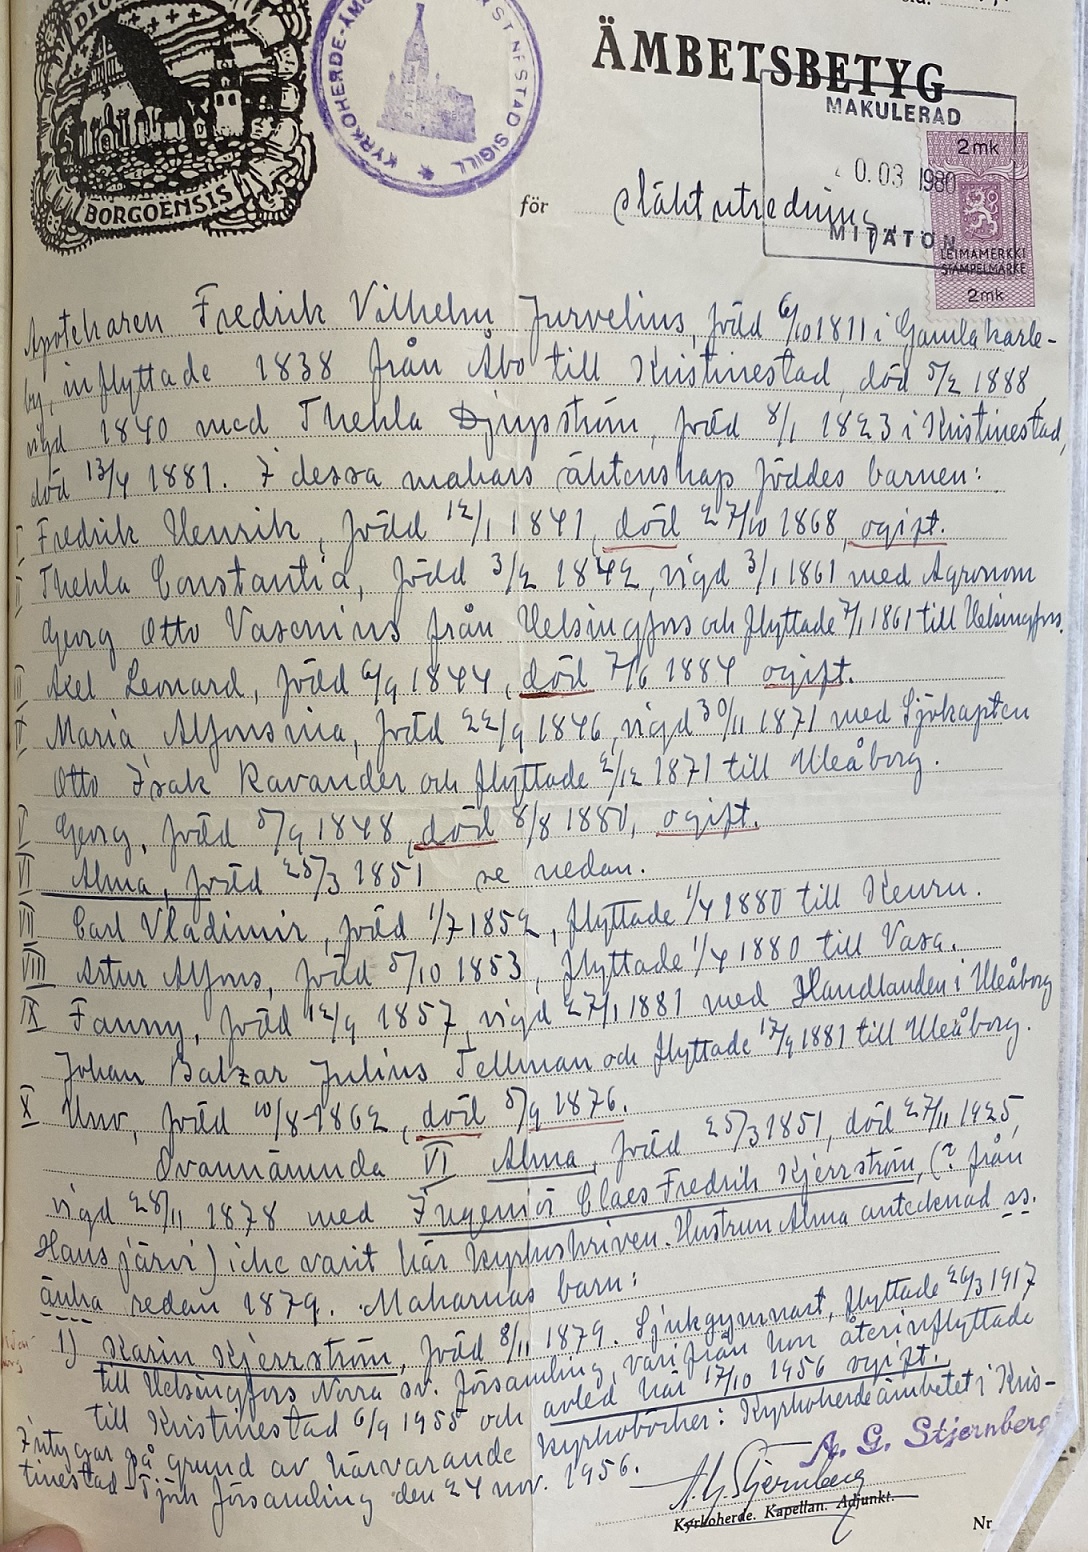 BORGOENSIS
KYRKOHERDE-ÄMB
ST NESTAD SIGILL
ÄMBETSBETYG
MAKULERAD
0.03 1980
MITÄTÖN
2 mk
LEIMAMERKKI
STÄMPELMÄRKE
2 mk
för släktutredning
Apotekaren Fredrik Vilhelm Jurvelius, född 6/10 1811 i Gamlakarle-
by, inflyttade 1838 från Åbo till Kristinestad, död 5/2 1888,
vigd 1840 med Thekla Djupström, född 8/1 1823 i Kristinestad,
död 13/4 1881. I dessa makars äktenskap föddes barnen:
I Fredrik Henrik, född 12/1 1841, död 27/10 1868, ogift.
II Thekla Constantia, född 3/2 1842, vigd 3/1 1861 med Agronom
Georg Otto Vasenius från Helsingfors och flyttade 7/1 1861 till Helsingfors.
III Axel Leonard, född 6/9 1844, död 7/6 1884 ogift.
IV Maria Alfonsina, född 22/9 1846, vigd 30/11 1871 med Sjökapten
Otto Isak Ravander och flyttade 2/12 1871 till Uleåborg.
V Georg, född 5/9 1848, död 8/8 1880, ogift.
VI Alma, född 25/3 1851 se nedan.
VII Carl Vladimir, född 1/7 1852, flyttade 1/4 1880 till Keuru.
VIII Artur Alfons, född 5/10 1853, flyttade 1/4 1880 till Vasa.
IX Fanny, född 12/9 1857, vigd 27/1 1881 med Handlanden i Uleåborg
Johan Balzar Julius Tellman och flyttade 17/9 1881 till Uleåborg.
X Uno, född 10/8 1862, död 5/9 1876.
Ovannämnda VI Alma, född 25/3 1851, död 27/11 1925,
vigd 28/11 1878 med Ingeniör Claes Fredrik Kjerrström, (? från
Hansjärvi) icke varit här kyrkoskriven. Hustrun Alma antecknad ss.
änka redan 1879. Makarnas barn:
1) Karin Kjerrström, född 8/11 1879. Sjukgymnast, flyttade 26/3 1917
till Helsingfors Norra sv. församling, varifrån hon återinflyttade
till Kristinestad 6/9 1955 och avled här 17/10 1956 ogift.
Intygar på grund av härvarande kyrkoböcker: Kyrkoherdeämbetet i Kris-
tinestad-Tjöck församling den 24 nov. 1956.
A. G. Stjernberg
A G Stjernberg
Kyrkoherde. Kapellan. Adjunkt.
Nr